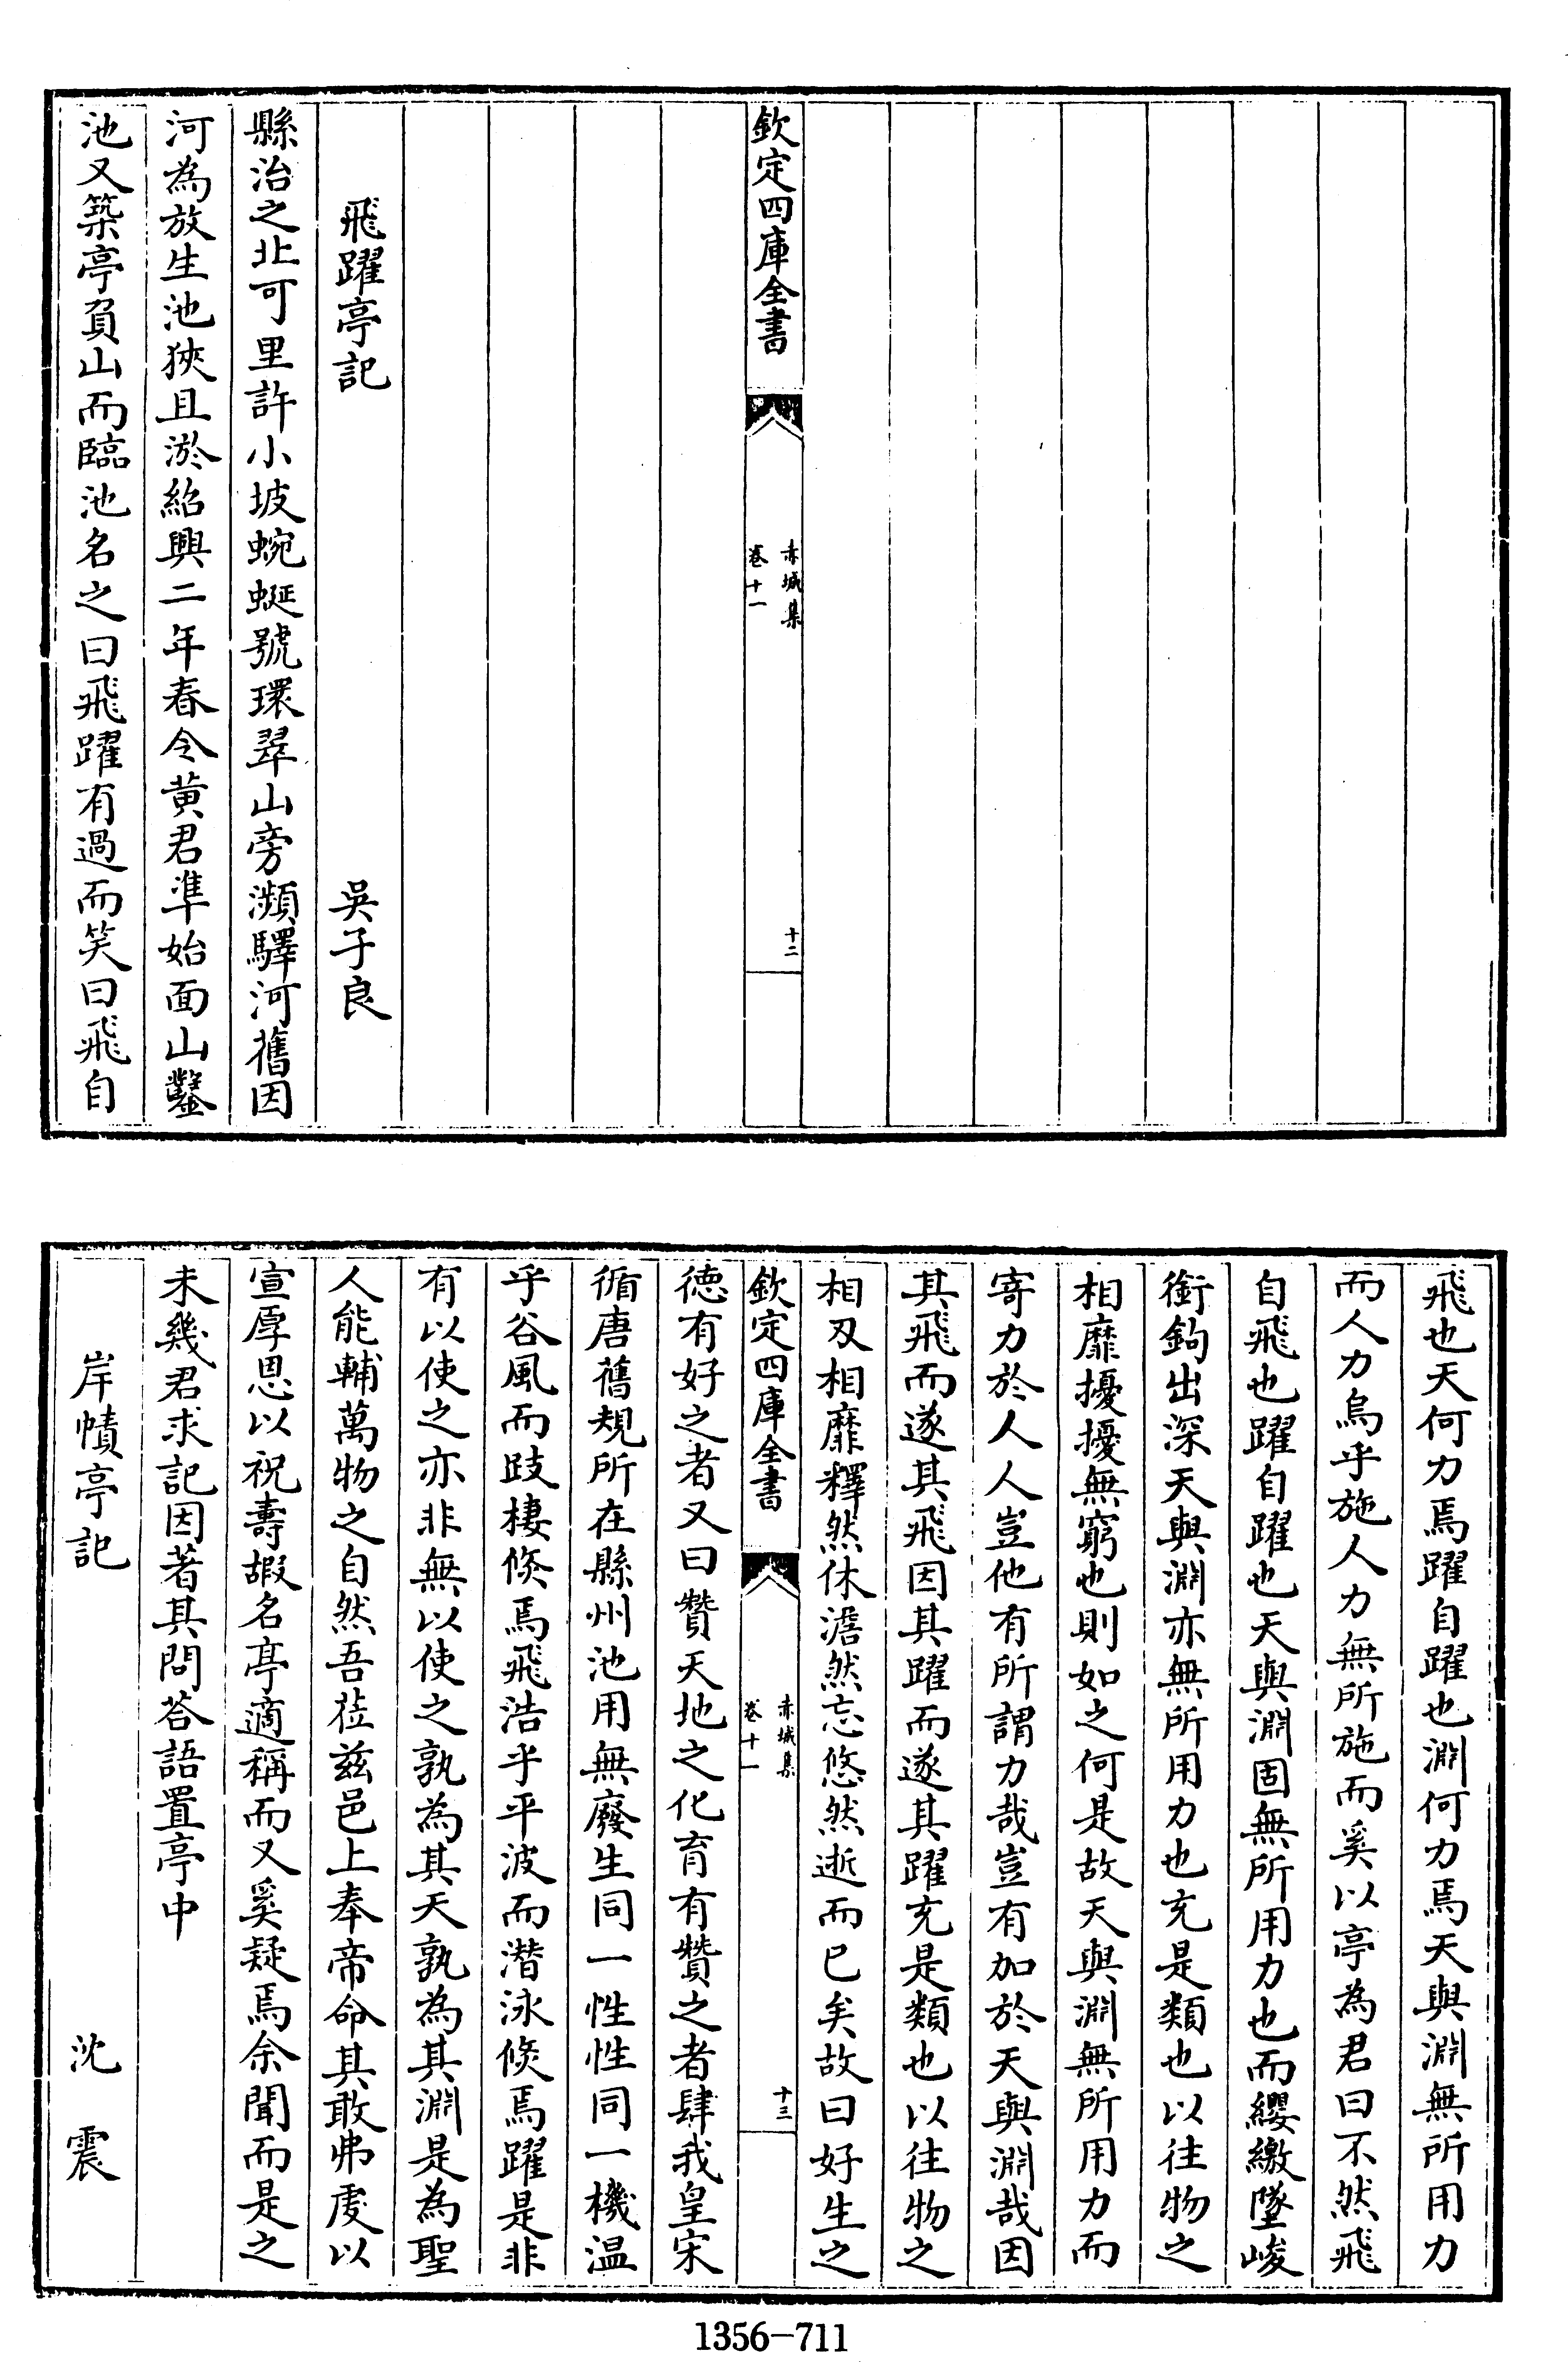 欽定四庫全書
赤城集
卷十一
十二
飛躍亭記 吳子良
縣治之北可里許小坡蜿蜒號環翠山旁瀕驛河舊因
河為放生池狹且淤紹興二年春令黃君準始面山鑿
池又築亭負山而臨池名之曰飛躍有過而笑曰飛自
飛也天何力焉躍自躍也淵何力焉天與淵無所用力
而人力烏乎施人力無所施而奚以亭為君曰不然飛
自飛也躍自躍也天與淵固無所用力也而纓繳墜峻
銜鉤出深天與淵亦無所用力也充是類也以往物之
相靡擾擾無窮也則如之何是故天與淵無所用力而
寄力於人人豈他有所謂力哉豈有加於天與淵哉因
其飛而遂其飛因其躍而遂其躍充是類也以往物之
相刃相靡釋然休澹然忘悠然逝而已矣故曰好生之
欽定四庫全書
赤城集
卷十一
十三
德有好之者又曰贊天地之化育有贊之者肆我皇宋
循唐舊規所在縣州池用無廢生同一性性同一機温
乎谷風而跂棲倏焉飛浩乎平波而潛泳倏焉躍是非
有以使之亦非無以使之孰為其天孰為其淵是為聖
人能輔萬物之自然吾莅兹邑上奉帝命其敢弗虔以
宣厚恩以祝壽嘏名亭適稱而又奚疑焉余聞而是之
未幾君求記因著其問答語置亭中
岸幘亭記 沈震
1356-711